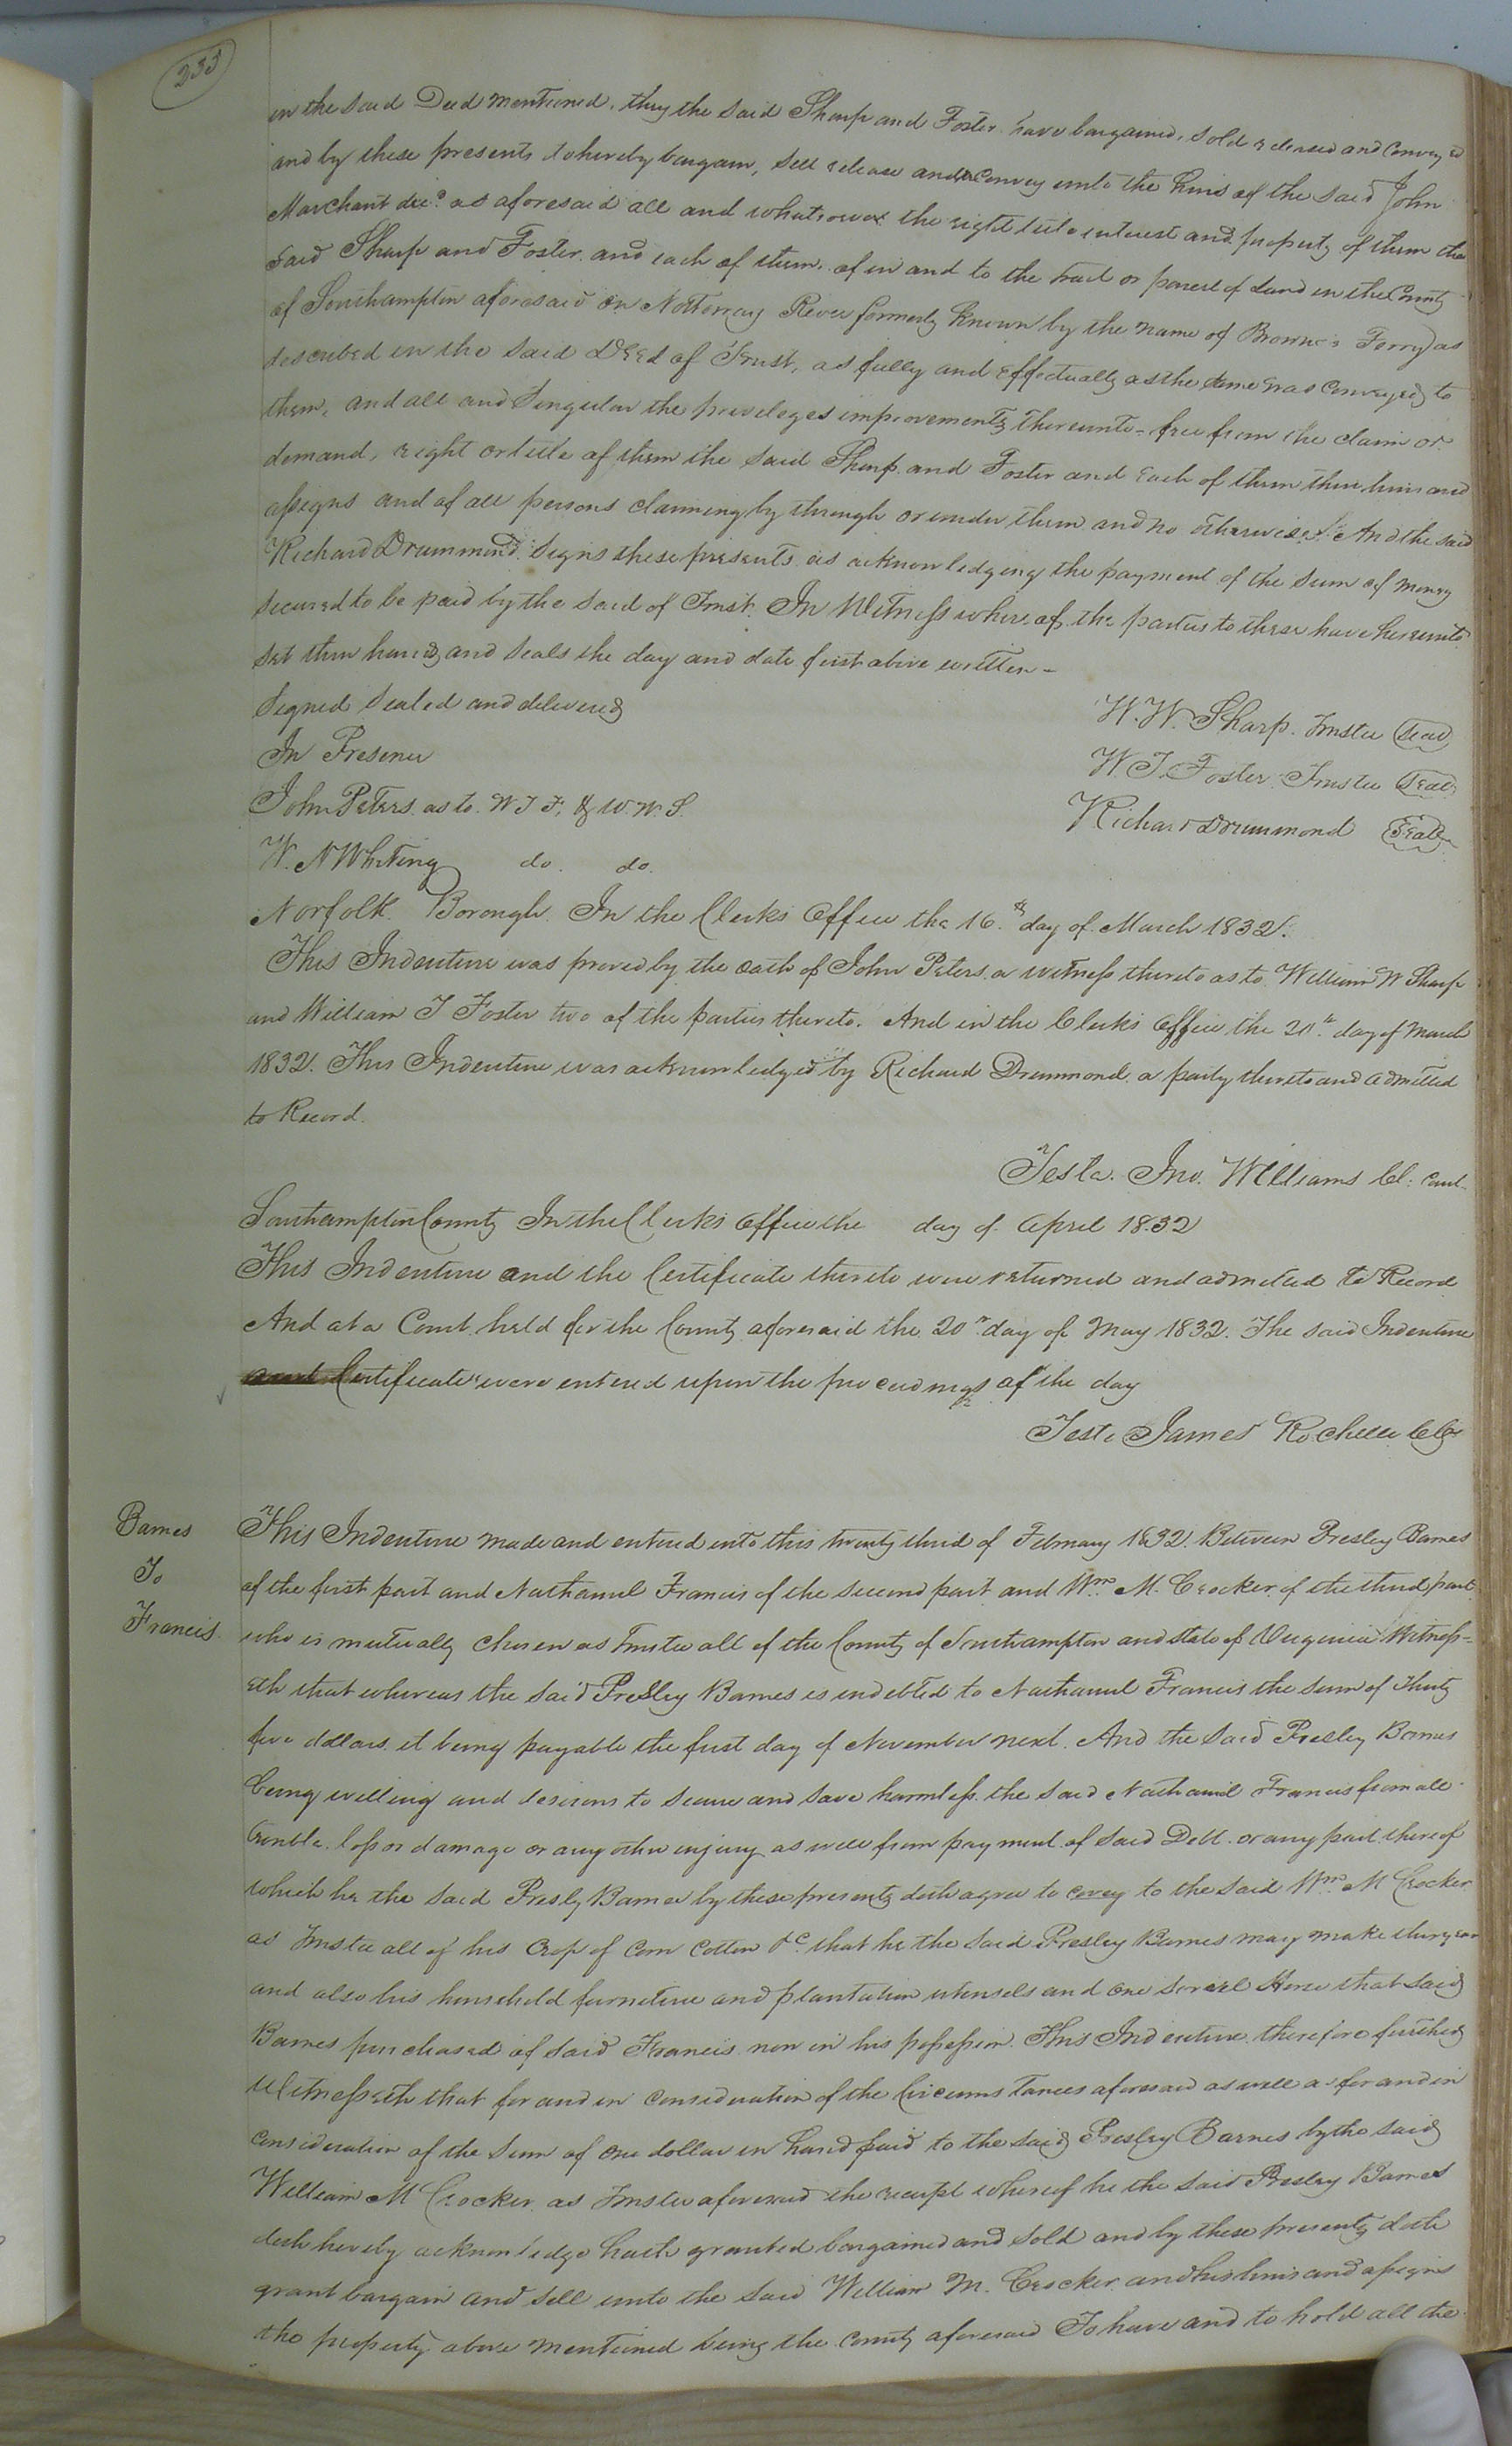 233
in the said Deed mentioned, they the said Sharp and Foster have bargained, sold released and Conveyed
and by these presents do hereby bargain, sell release and Convey unto the heirs of the said John
Marchant decd. as aforesaid all and whatsoever the right title interest and property of them the
said Sharp and Foster and each of them, of in and to the tract or parcel of Land in the County
of Southampton aforesaid on Nottoway River formerly known by the name of Browne's Ferry as
described in the said Deed of Trust, as fully and effectually as the same was Conveyed to
them, and all and Singular the priveleges improvements thereunto = free from the claim or
demand, right or title of them the said Sharp and Foster and each of them their heirs and
assigns and of all persons claiming by through or under them and no otherwise. And the said
Richard Drummond Signs these presents as acknowledging the payment of the sum of money
secured to be paid by the said of Trust. In Witness whereof the parties to these have hereunto
set their hands and seals the day and date first above written -
Signed Sealed and delivered
In Presence
John Peters as to W T F, & W. W. S.
W. N Whiting do. do.
W. W. Sharp. Trustee Seal
W T. Foster Trustee Seal
Richard Drummond Seal
Norfolk Borough In the Clerks Office the 16.th day of March 1832.
This Indenture was proved by the oath of John Peters a witness thereto as to William W Sharp
and William T Foster two of the parties thereto. And in the Clerks Office the 20th. day of March
1832. This Indenture was acknowledged by Richard Drummond a party thereto and admitted
to Record.
Teste. Jno. Williams Cl:
Southampton County In the Clerks Office the day of April 1832
This Indenture and the Certificate thereto were returned and admitted to Record
And at a Court held for the County aforesaid the 20th day of May 1832. The said Indenture
Certificate were entered upon the proceedings of the day
Teste James Rochelle
Barnes
To
Francis
This Indenture made and entered into this twenty third of February 1832. Between Presley Barnes
of the first part and Nathaniel Francis of the second part and Wm. M. Crocker of the third part
who is mutually chosen as Trustee all of the County of Southampton and state of Virginia Witness=
eth that whereas the said Presley Barnes is indebted to Nathaniel Francis the sum of Thirty
five dollars it being payable the first day of November next. And the said Presley Barnes
being willing and desirous to secure and save harmless the said Nathaniel Francis from all
trouble loss or damage or any other injury as well from payment of said Debt or any part thereof
which he the said Presly Barnes by these presents doth agree to covey to the said Wm. M Crocker
as Trustee all of his Crop of Corn Cotton &c. that he the said Presley Barnes may make this year
and also his household furniture and plantation utensels and one Sorrel Horse that said
Barnes purchased of said Francis now in his possession. This Indenture therefore further
Witnesseth that for and in consideration of the Circumstances aforesaid as well as for and in
consideration of the Sum of one dollar in hand paid to the said Presley Barnes by the said
William M Crocker as Trustee aforesaid the receipt whereof he the said Presley Barnes
doth hereby acknowledge hath granted bargained and sold and by these presents doth
grant bargain and sell unto the said William M. Crocker and his heirs and assigns
the property above mentioned being the County aforesaid To have and to hold all the